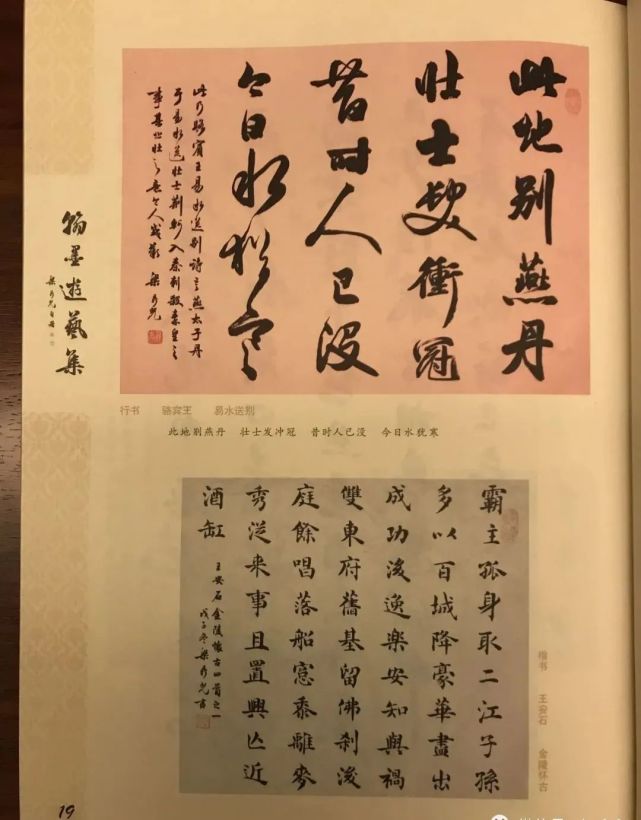 此地别燕丹
壮士髮衝冠
昔时人已没
今日水猶寒
此乃骆賓王易水送别诗言燕太子丹
于易水送壮士荆轲入秦刺殺秦皇之
翰墨遊藝集
行书 骆宾王 易水送别
此地别燕丹 壮士发冲冠 昔时人已没 今日水犹寒
霸主孤身取二江子孫
多以百城降豪華盡出
成功後逸樂安知與禍
雙東府舊基留佛刹後
庭餘唱落船窓黍離麥
秀從来事且置興亡近
酒缸
王安石金陵懷古四首之一
戊子冬梁
楷书 王安石 金陵怀古
19